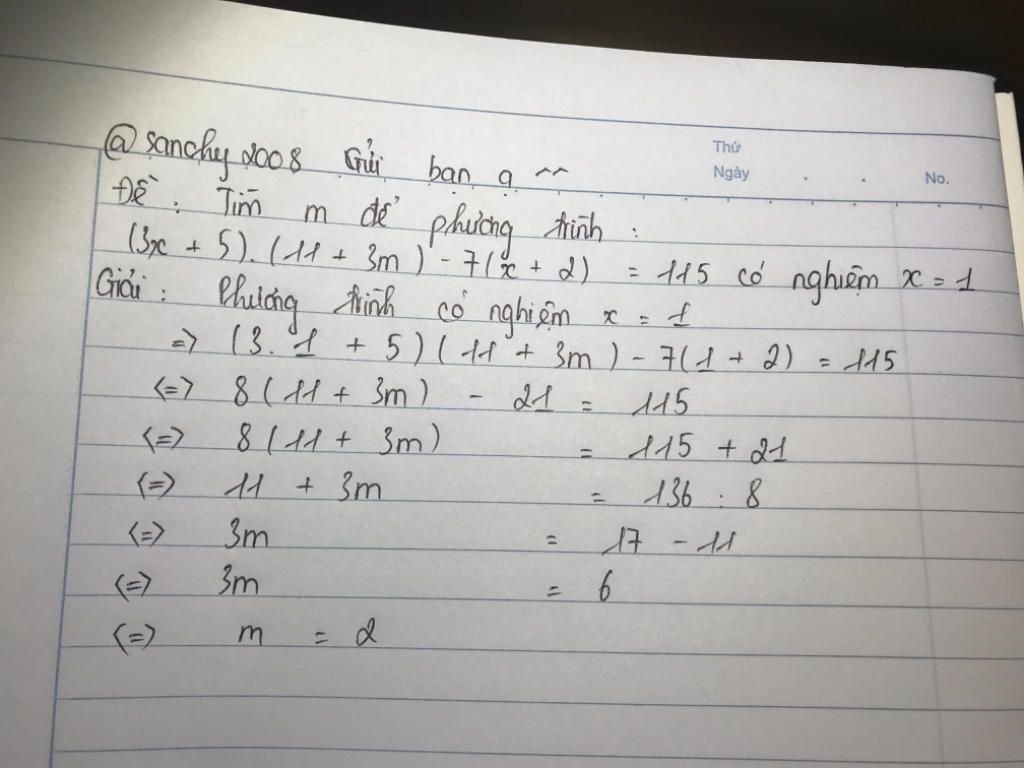 @sanchy2008 Gửi bạn ạ ^^
Thứ
Ngày . . No.
Đề : Tìm m để phương trình :
(3x + 5).(11 + 3m) - 7(x + 2) = 115 có nghiệm x = 1
Giải : Phương trình có nghiệm x = 1
=> (3. 1 + 5)(11 + 3m) - 7(1 + 2) = 115
<=> 8(11 + 3m) - 21 = 115
<=> 8(11 + 3m) = 115 + 21
<=> 11 + 3m = 136 : 8
<=> 3m = 17 - 11
<=> 3m = 6
<=> m = 2